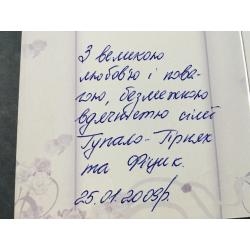 З великою
любов'ю і пова-
гою, безмежною
вдячністю сім'ї
Гупало-Прняк
та Фіцик.
25.01.2009р.